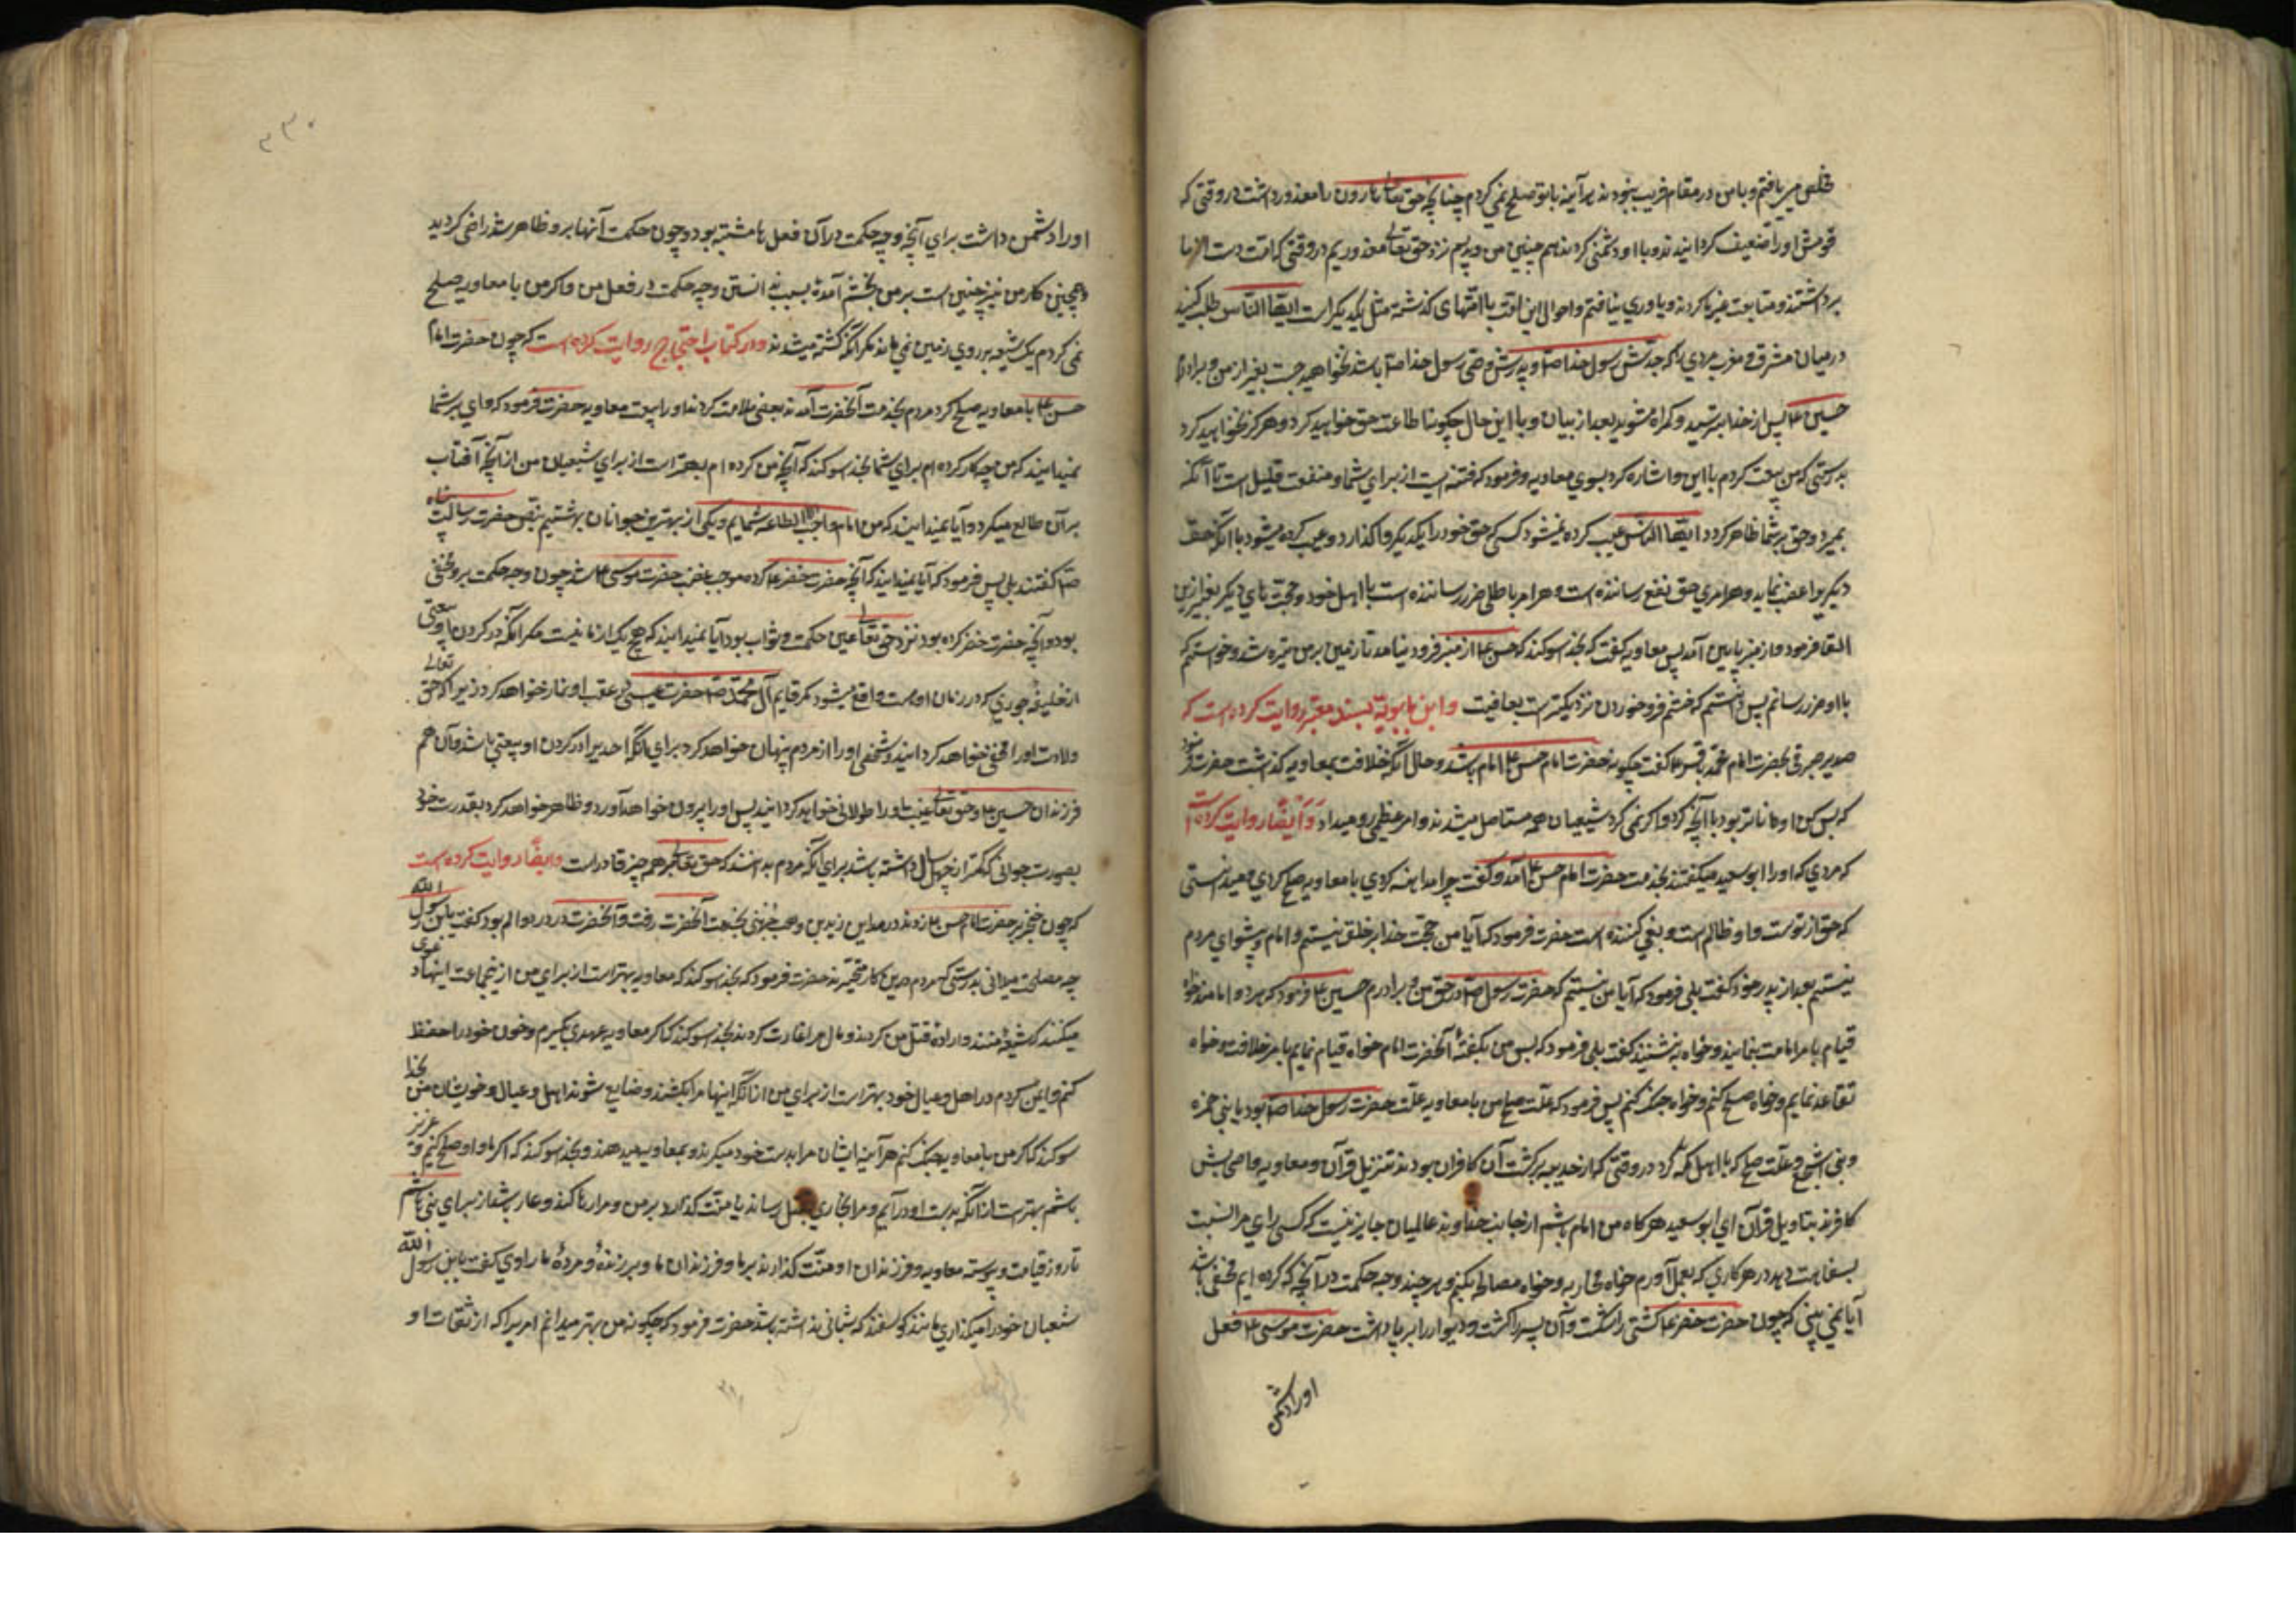 مخلص می یافتم و با من در مقام فریب نبودند هر آینه با تو صلح نمی کردم چنانچه حق تعالی هارون را معذور داشت در وقتی که
قومش او را ضعیف کردانیدند و با او دشمنی کردند همچنین من و پدرم نزد حق تعالی معذوریم در وقتی که امت دست از ما
برداشتند و متابعت غیر ما کردند و یاوری نیافتم و احوال این امت با امتهای کذشته مثل یکدیکر است ایها الناس طلب کنید
در میان مشرق و مغرب مردی را که جدش رسول خدا صلا و پدرش وصی رسول خدا صلا باشد نخواهید جست بغیر از من و برادرم
حسین ع پس از خدا بترسید و کمراه مشوید بعد از بیان و با این حال چکونه اطاعت حق خواهید کرد و هرکز نخواهید کرد
بدرستی که من بیعت کردم با این و اشاره کرد بسوی معاویه و فرمود که فتنه ایست از برای شما و منفعت قلیل است تا آنکه
بمیرد و حق بر شما ظاهر کردد ایها الناس عیب کرده نمیشود کسی که حق خود را بدیکری واکذارد و عیب کرده میشود با آنکه حق
دیکریرا غصب نماید و هر امری حق نفع رساننده است و هر امر باطلی ضرر رساننده است با اهل خود و حجت های دیکر بغیر ازین
القا فرمود و از منبر پایین آمد پس معاویه کفت که بخدا سوکند که حسن ع از منبر فرود نیامد تا زمین بر من تیره شد و خواستم که
باو ضرر رسانم پس دانستم که خشم فرو خوردن نزدیکتر است بعافیت و ابن بابویه بسند معتبر روایت کرده است که
سدیر صیرفی بحضرت امام محمد باقر ع کفت چکونه حضرت امام حسن ع امام باشد و حال آنکه خلافت بمعاویه کذشت حضرت فرمود
که بس کن او داناتر بود با آنچه کرد و اکر نمی کرد شیعیان همه مستاصل میشدند و امر عظیمی رو میداد و ایضا روایت کرده است
که مردی که او را ابو سعید میکفتند بخدمت حضرت امام حسن ع آمد و کفت چرا مداهنه کردی با معاویه و صلح کردی میدانستی
که حق از تو است و او ظالم است و بغی کننده است حضرت فرمود که آیا من حجت خدا بر خلق نیستم و امام و پیشوای مردم
نیستم بعد از پدر خود کفت بلی فرمود که آیا من نیستم که حضرت رسول صلا در حق من و برادرم حسین ع فرمود که هر دو امامند خواه
قیام بامر امامت بنمایند و خواه بنشینند کفت بلی فرمود که پس من بکفتهٔ آنحضرت امامم خواه قیام نمایم بامر خلافت و خواه
تقاعد نمایم و خواه صلح کنم و خواه جنک کنم پس فرمود که علت صلح من با معاویه علت حضرت رسول خدا صلا بود با بنی ضمره
و بنی اشجع و علت صلح که با اهل مکه کرد در وقتی که از حدیبیه برکشت آن کافران بودند بتنزیل قرآن و معاویه و اصحابش
کافرند بتاویل قرآن ای ابو سعید هرکاه من امام باشم از جانب خداوند عالمیان جایز نیست که کسی رای مرا نسبت
بسفاهت دهد در هر کاری که بعمل آورم خواه محاربه و خواه مصالحه بکنم و هر چند وجه حکمت در آنچه که کرده ایم مخفی باشد
آیا نمی بینی که چون حضرت خضر ع کشتی را شکست و آن پسر را کشت و دیوار را بر پا داشت حضرت موسی ع فعل
او را دشمن
۳۳۰
او را دشمن داشت برای آنچه وجه حکمت در آن فعل ها مشتبه بود و چون حکمت آنها برو ظاهر شد راضی کردید
و همچنین کار من نیز چنین است بر من بخشم آمدهٔ بسبب ندانستن وجه حکمت در فعل من و اکر من با معاویه صلح
نمی کردم یک شیعه بر روی زمین نمی ماند مکر آنکه کشته میشدند و در کتاب احتجاج روایت کرده است که چون حضرت امام
حسن ع با معاویه صلح کرد مردم بخدمت آنحضرت آمدند بعضی ملامت کردند او را ببیعت معاویه حضرت فرمود که وای بر شما
نمیدانید که من چه کار کرده ام برای شما بخدا سوکند که آنچه من کرده ام بهتر است از برای شیعیان من از آنچه آفتاب
بر آن طالع میکردد آیا نمیدانید که من امام واجب الاطاعهٔ شمایم و یکی از بهترین جوانان بهشتیم بنص حضرت رسالت پناه
صلا کفتند بلی پس فرمود که آیا نمیدانید که آنچه حضرت خضر ع کرد موجب غضب حضرت موسی ع شد چون وجه حکمت برو مخفی
بود و آنچه حضرت خضر کرده بود نزد حق تعالی عین حکمت و ثواب بود آیا نمیدانید که هیچ یک از ما نیست مکر آنکه در کردن او بیعتی
از خلیفهٔ جوری که در زمان اوست واقع میشود مکر قایم آل محمد صلا حضرت عیسی در عقب او نماز خواهد کرد زیرا که حق تعالی
ولادت او را مخفی خواهد کردانید و شخص او را از مردم پنهان خواهد کرد برای آنکه احدیرا در کردن او بیعتی نباشد و آن نهم
فرزندان حسین ع و حق تعالی غیبت او را طولانی خواهد کردانید پس او را بیرون خواهد آورد و ظاهر خواهد کرد بقدرت خود
بصورت جوانی که کمتر از چهل سال داشته باشد برای آنکه مردم بدانند که حق تعالی بر همه چیز قادر است و ایضا روایت کرده است
که چون خنجر بر حضرت امام حسن ع زدند در مداین زید بن وهب جهنی بخدمت آنحضرت رفت و آنحضرت در درد و الم بود کفت یابن رسول الله
چه مصلحت میدانی بدرستی که مردم درین کار متحیرند حضرت فرمود که بخدا سوکند که معاویه بهتر است از برای من ازین جماعت اینها دعوی
میکنند که شیعهٔ منند و ارادهٔ قتل من کردند و مال مرا غارت کردند بخدا سوکند که اکر از معاویه عهدی بکیرم و خون خود را حفظ
کنم و ایمن کردم در اهل و عیال خود بهتر است از برای من از آنکه اینها مرا بکشند و ضایع شوند اهل و عیال و خویشان من بخدا
سوکند که اکر من با معاویه جنک کنم هر آینه ایشان مرا بدست خود میکیرند و بمعاویه میدهند و بخدا سوکند که اکر با او صلح کنم و عزیز
باشم بهتر است از آنکه بدست او در آیم و مرا بخاری بقتل رساند یا منت کذارد بر من و مرا رها کند و عار باشد از برای بنی هاشم
تا روز قیامت و پیوسته معاویه و فرزندان او منت کذارند بر ما و فرزندان ما و بر زندهٔ و مردهٔ ما راوی کفت یابن رسول الله
شیعیان خود را میکذاری مانند کوسفند که شبانی نداشته باشد حضرت فرمود که چکونه من بهتر میدانم امریرا که از ثقات او